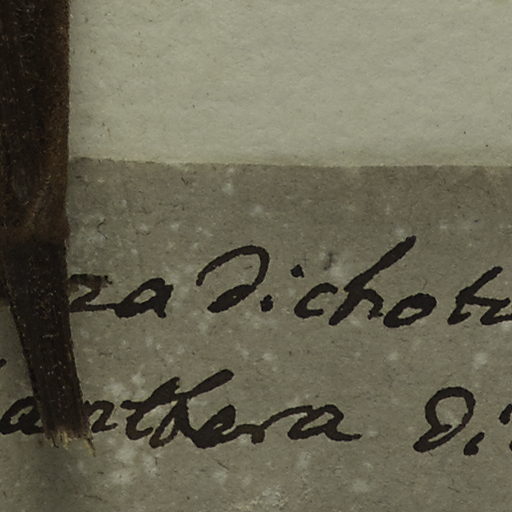 ra dichoto
anthera di